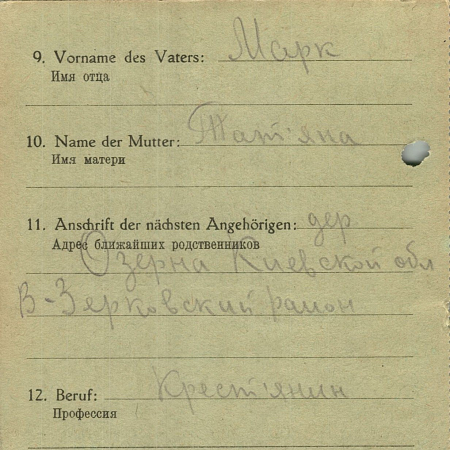 9. Vorname des Vaters: Марк
Имя отца
10. Name der Mutter: Тат'яна
Имя матери
11. Anschrift der nächsten Angehörigen: дер
Адрес ближайших родственников
Озерна Киевской обл
В-Зерковский район
12. Beruf: Крест'янин
Профессия